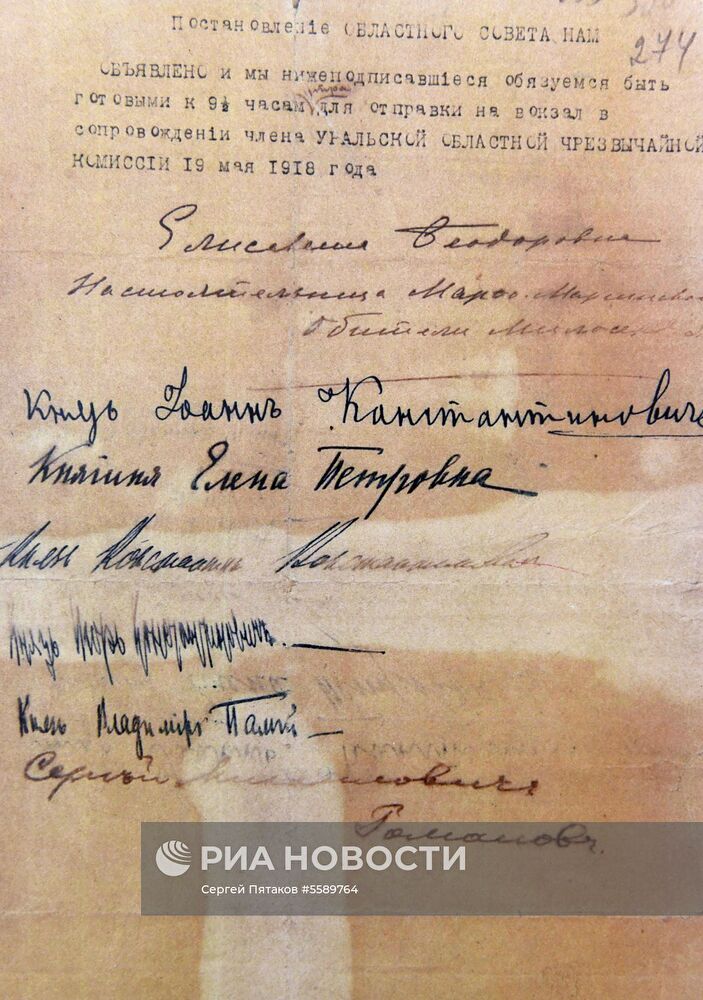 Постановленіе ОБЛАСТНОГО СОВЕТА НАМ
274
ОБЪЯВЛЕНО и мы нижеподписавшіеся обязуемся быть
утра
готовыми к 9½ часам для отправки на вокзал в
сопровожденіи члена УРАЛЬСКОЙ ОБЛАСТНОЙ ЧРЕЗВЫЧАЙНОЙ
КОМИССІИ 19 мая 1918 года
Елисавета Ѳеодоровна
Настоятельница Марѳо-Маріинской
Обители Милосердія
Князь Іоаннъ Константиновичъ
Княгиня Елена Петровна
Князь Константинъ Константиновичъ
Князь Игорь Константиновичъ
Князь Владиміръ Палѣй
Сергѣй Михайловичъ
Романовъ.
РИА НОВОСТИ
Сергей Пятаков #5589764